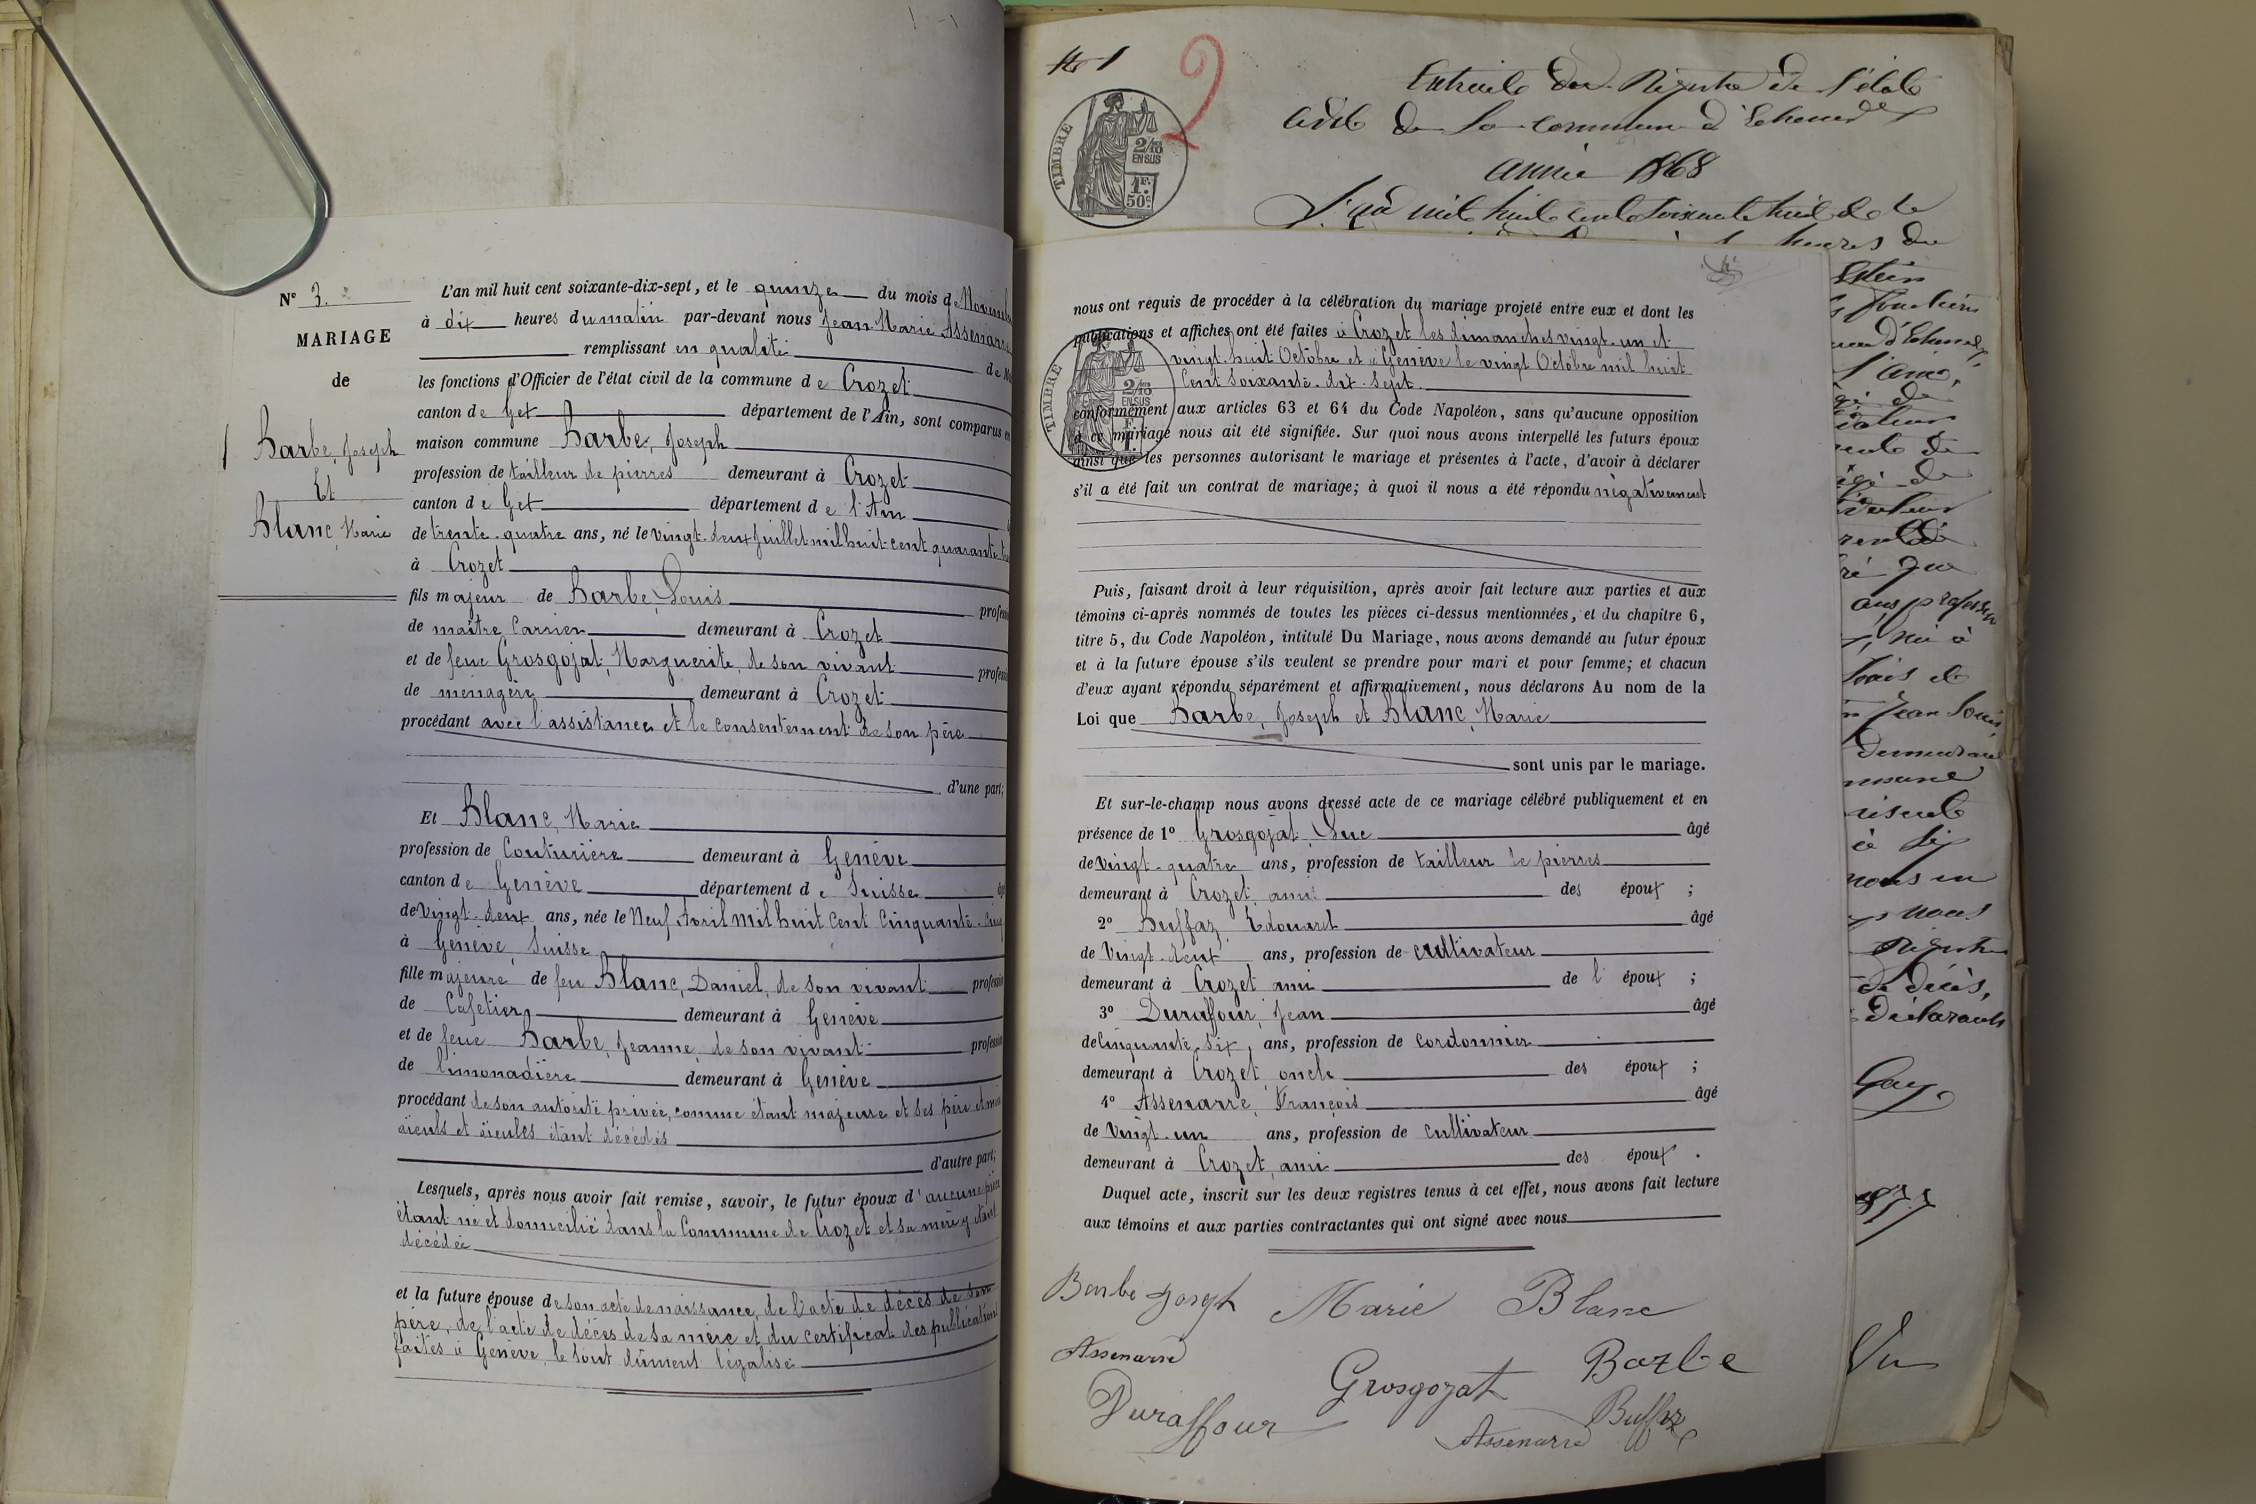 N° 3.
MARIAGE
de
Barbe, Joseph
Et
Blanc, Marie
L'an mil huit cent soixante-dix-sept, et le quinze du mois de Novembre
à dix heures du matin par-devant nous Jean Marie Assenarre
remplissant en qualité de
les fonctions d'Officier de l'état civil de la commune de Crozet
canton de Gex département de l'Ain, sont comparus en
maison commune Barbe, Joseph
profession de tailleur de pierres demeurant à Crozet
canton de Gex département de l'Ain
de trente-quatre ans, né le vingt-deux Juillet mil huit cent quarante
à Crozet
fils majeur de Barbe, Louis profess
de maître Carrier demeurant à Crozet
et de feue Grosgojat, Marguerite, de son vivant profess
de ménagère demeurant à Crozet
procédant avec l'assistance et le consentement de son père
d'une part;
Et Blanc, Marie
profession de Couturière demeurant à Genève
canton de Genève département de Suisse
de Vingt-deux ans, née le Neuf Avril mil huit cent cinquante-cinq
à Genève, Suisse
fille majeure de feu Blanc, Daniel, de son vivant profession
de Cafetier demeurant à Genève
et de feue Barbe, Jeanne, de son vivant profession
de limonadière demeurant à Genève
procédant de son autorité privée, comme étant majeure et ses père et mère
aïeuls et aïeules étant décédés
d'autre part;
Lesquels, après nous avoir fait remise, savoir, le futur époux d'aucune pièce
étant né et domicilié dans la Commune de Crozet et sa mère y étant
décédée
et la future épouse de son acte de naissance, de l'acte de décès de son
père, de l'acte de décès de sa mère et du certificat des publications
faites à Genève, le tout dûment légalisé
N° 1
2
TIMBRE
2/10
EN SUS
1F.
50c.
Extrait du Registre de l'état
civil de la commune d'Echenevex
année 1868
L'an mil huit cent soixante huit et le
heures du
nous ont requis de procéder à la célébration du mariage projeté entre eux et dont les
publications et affiches ont été faites à Crozet les dimanches vingt-un et
vingt-huit Octobre et à Genève le vingt Octobre mil huit
Cent soixante-dix-sept.
conformément aux articles 63 et 64 du Code Napoléon, sans qu'aucune opposition
à ce mariage nous ait été signifiée. Sur quoi nous avons interpellé les futurs époux
ainsi que les personnes autorisant le mariage et présentes à l'acte, d'avoir à déclarer
s'il a été fait un contrat de mariage; à quoi il nous a été répondu négativement
Puis, faisant droit à leur réquisition, après avoir fait lecture aux parties et aux
témoins ci-après nommés de toutes les pièces ci-dessus mentionnées, et du chapitre 6,
titre 5, du Code Napoléon, intitulé Du Mariage, nous avons demandé au futur époux
et à la future épouse s'ils veulent se prendre pour mari et pour femme; et chacun
d'eux ayant répondu séparément et affirmativement, nous déclarons Au nom de la
Loi que Barbe, Joseph et Blanc, Marie
sont unis par le mariage.
Et sur-le-champ nous avons dressé acte de ce mariage célébré publiquement et en
présence de 1° Grosgojat, Luc âgé
de vingt-quatre ans, profession de tailleur de pierres
demeurant à Crozet, ami des époux ;
2° Buffaz, Edouard âgé
de Vingt-deux ans, profession de cultivateur
demeurant à Crozet ami de l'époux ;
3° Duraffour, Jean âgé
de Cinquante-six, ans, profession de cordonnier
demeurant à Crozet, oncle des époux ;
4° Assenarre, François âgé
de Vingt-un ans, profession de cultivateur
demeurant à Crozet, ami des époux.
Duquel acte, inscrit sur les deux registres tenus à cet effet, nous avons fait lecture
aux témoins et aux parties contractantes qui ont signé avec nous
Barbe Joseph Marie Blanc
Assenarre Grosgozat Barbe
Duraffour Assenarre Buffaz
TIMBRE
2/10
EN SUS
ans, profession
né à
Jean Louis
demeurant
nous en
nous
de décès,
déclarants
Gay
Vu